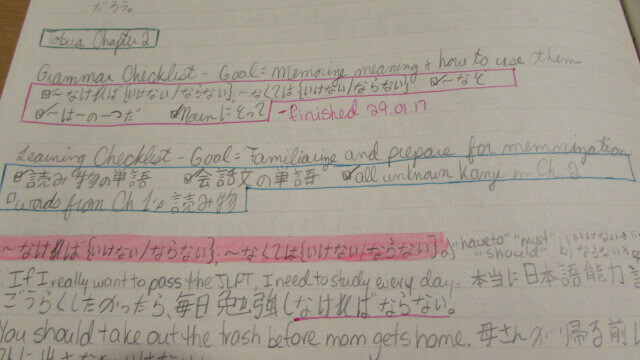 だろう。
Tobira Chapter 2
Grammar Checklist - Goal = Memorize meaning + how to use them
☑〜なければ{いけない/ならない}、〜なくては{いけない/ならない} ☑〜など
☑〜は〜の一つだ ☑Nounにとって - finished 29.01.17
Learning Checklist - Goal = Familiarize and prepare for memorization
☑読み物の単語 ☑会話文の単語 ☑all unknown Kanji in Ch. 2
□words from Ch 1's 読み物
〜なければ{いけない/ならない}、〜なくては{いけない/ならない} a) "have to" "must" "should" b)
If I really want to pass the JLPT, I need to study every day. 本当に日本語能力
ごうらくしたかったら、毎日勉強しなければならない。
You should take out the trash before mom gets home. 母さんが帰る前